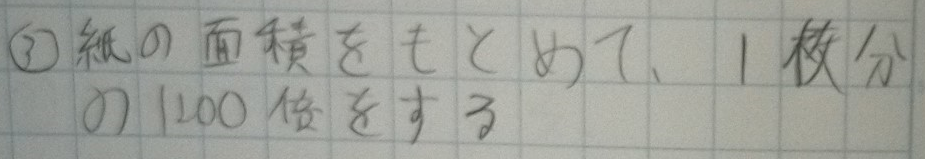 ③紙の面積をもとめて、1枚分
の1200倍をする